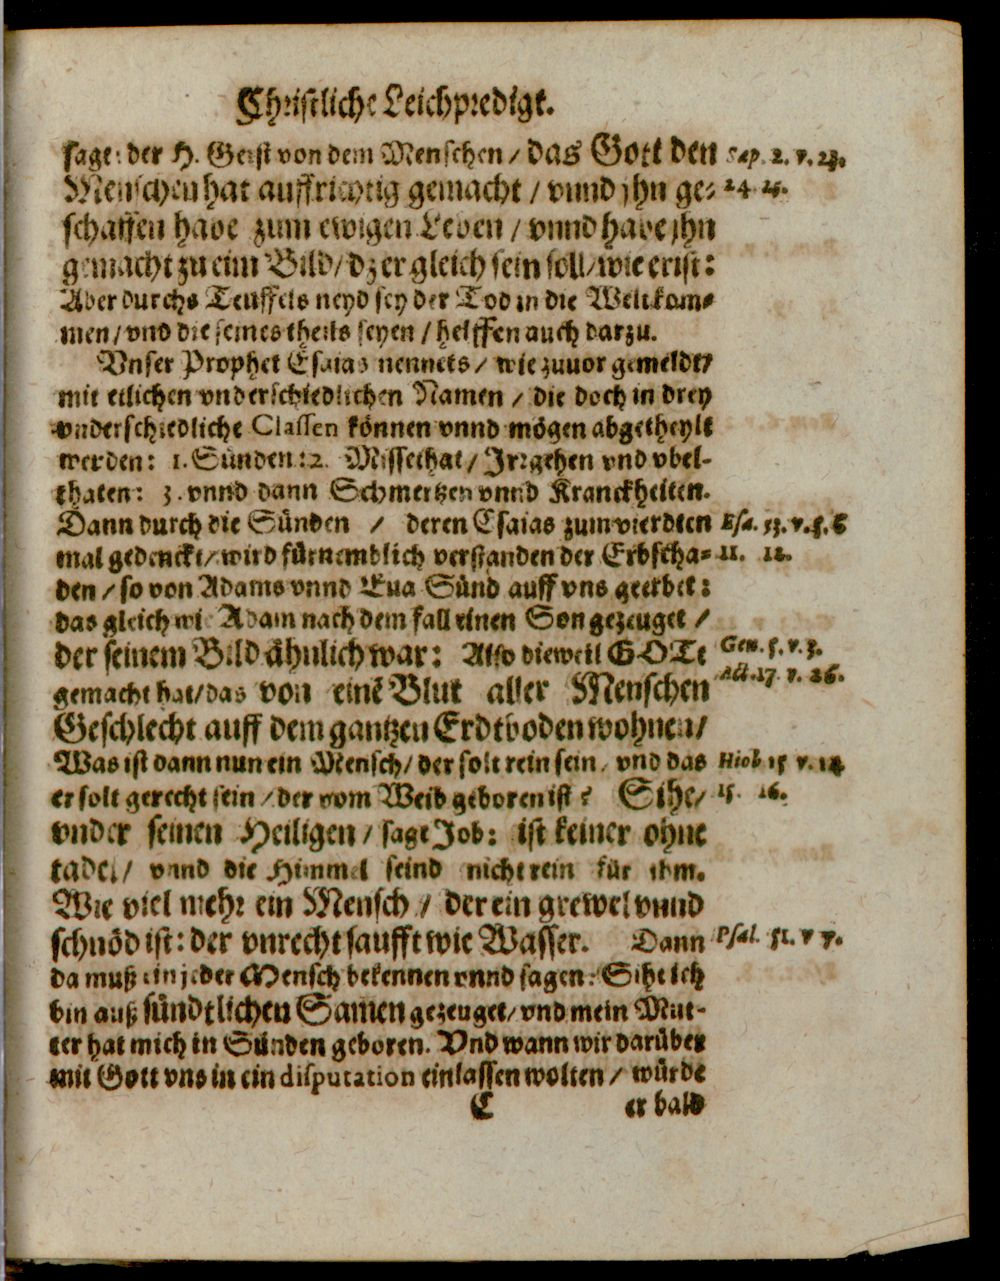 Christliche Leichpredigt.
sagt der H. Geist von dem Menschen / das Gott den Sap. 2. v. 23.
Menschen hat auffrichtig gemacht / vnnd jhn ge- 24 25.
schaffen habe zum ewigen Leben / vnnd habe jhn
gemacht zu eim Bild / dz er gleich sein soll / wie er ist:
Aber durchs Teuffels neyd sey der Tod in die Welt kom-
men / vnd die seines theils seyen / helffen auch darzu.
Vnser Prophet Esaias nennets / wie zuuor gemeldt /
mit etlichen vnderschiedlichen Namen / die doch in drey
vnderschiedliche Classen können vnnd mögen abgetheylt
werden: 1. Sünden: 2. Missethat / Irrgehen vnd vbel-
thaten: 3. vnnd dann Schmertzen vnnd Kranckheiten.
Dann durch die Sünden / deren Esaias zum vierdten Esa. 53. v. 5. 6
mal gedenckt / wird fürnemblich verstanden der Erbscha- 11. 12.
den / so von Adams vnnd Eua Sünd auff vns geerbet:
das gleich wie Adam nach dem fall einen Son gezeuget /
der seinem Bild ähnlich war: Also dieweil GOTt Gen. 5. v. 3.
gemacht hat / das von einē Blut aller Menschen Act. 17. v. 26.
Geschlecht auff dem gantzen Erdtboden wohnen /
Was ist dann nun ein Mensch / der solt rein sein / vnd das Hiob 15 v. 14
er solt gerecht sein / der vom Weib geboren ist? Sihe / 15. 16.
vnder seinen Heiligen / sagt Job: ist keiner ohne
tadel / vnnd die Himmel seind nicht rein für ihm.
Wie viel mehr ein Mensch / der ein grewel vnnd
schnöd ist: der vnrecht saufft wie Wasser. Dann Psal. 51. v 7.
da muß ein jeder Mensch bekennen vnnd sagen: Sihe ich
bin auß sündtlichen Samen gezeuget / vnd mein Mut-
ter hat mich in Sünden geboren. Vnd wann wir darüber
mit Gott vns in ein disputation einlassen wolten / würde
C er bald